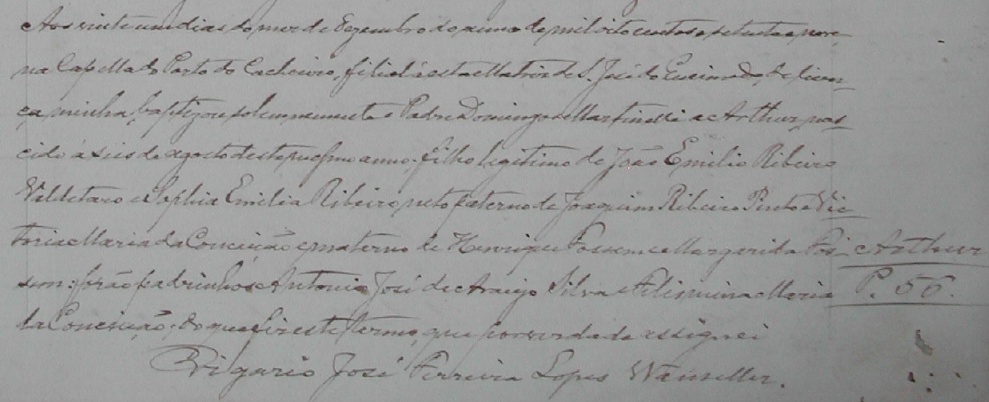 Aos vinte um dias do mez de Dezembro do anno de mil oito centos e setenta e nove
na Capella do Porto do Cachoeiro, filial á esta Matriz de S. José do Queimado, de licen-
ça minha, baptizou solemnemente o Padre Domingos Martinelli a Arthur, nas-
cido á seis de agosto deste mesmo anno, filho legitimo de João Emilio Ribeiro
Valdetaro e Sophia Emilia Ribeiro, neto paterno de Joaquim Ribeiro Pinto e Vic-
toria Maria da Conceição e materno de Henrique e Margarida
forão padrinhos Antonio José de Araujo Silva e Felismina Maria
da Conceição; do que fiz este termo, que por verdade assignei
Vigario José Ferreira Lopes Wanseller.
Arthur
P. 56.